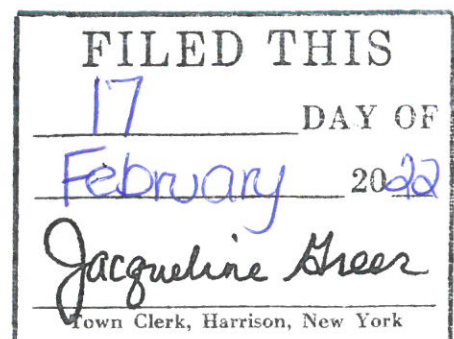 FILED THIS
17 DAY OF
February 2022
Jacqueline Greer
Town Clerk, Harrison, New York